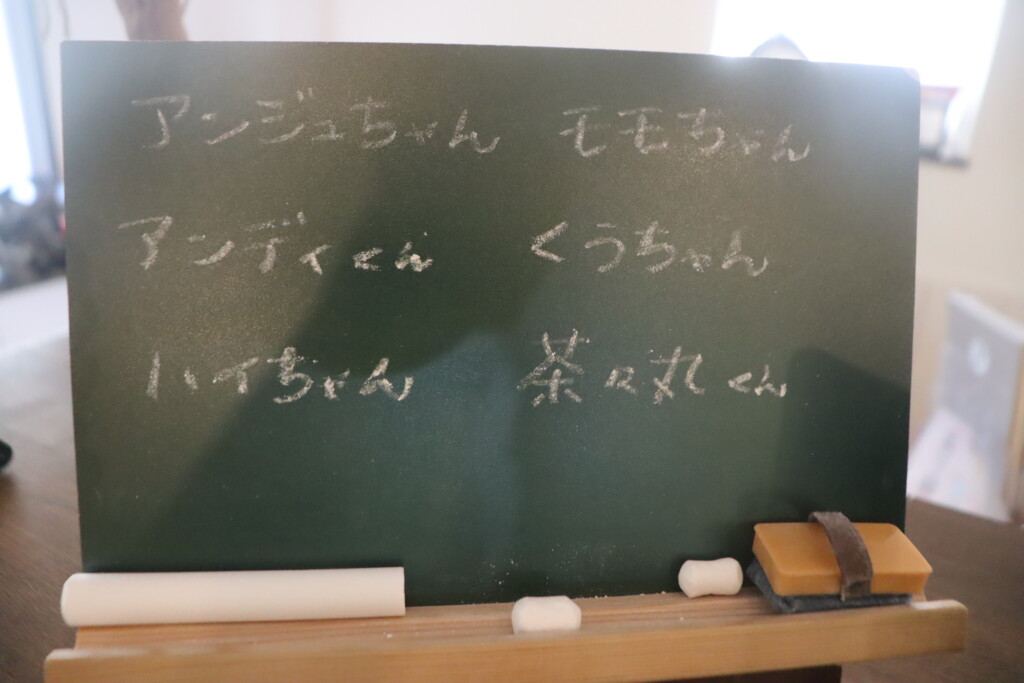 アンジュちゃん モモちゃん
アンディくん くうちゃん
ハイぢゃん 茶々丸くん